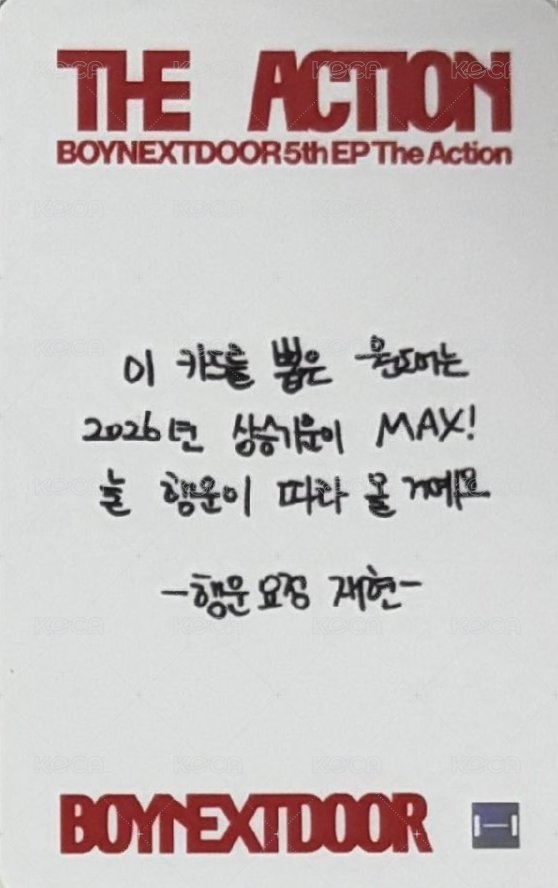 THE ACTION
BOYNEXTDOOR 5th EP The Action
이 카드를 뽑은 원도어는
2026년 상승기운이 MAX!
늘 행운이 따라 올 거예요
-행운요정 재현-
BOYNEXTDOOR
KOCA